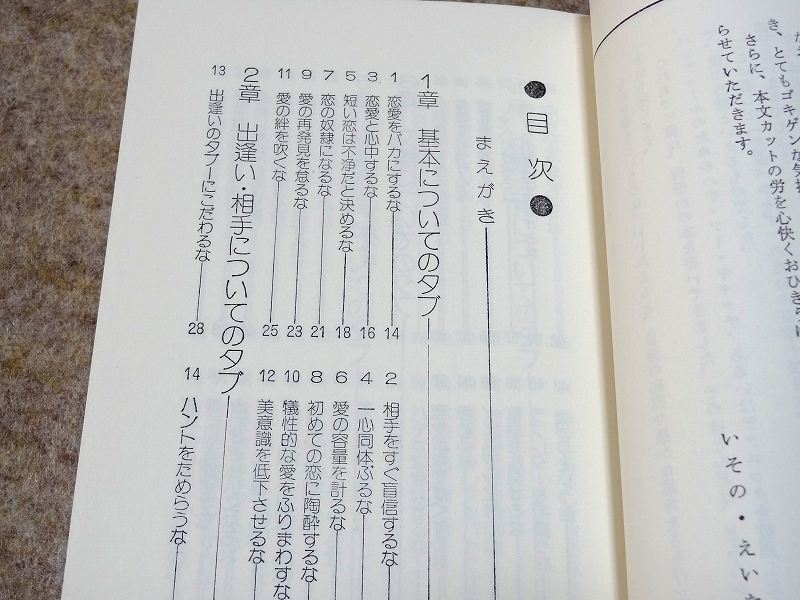 き、とてもゴキゲンな気持
さらに、本文カットの労を心快くおひきうけ
らせていただきます。
いその・えいた
●目次●
まえがき
1章 基本についてのタブー
1 恋愛をバカにするな 14
2 相手をすぐ盲信するな
3 恋愛と心中するな 16
4 一心同体ぶるな
5 短い恋は不浄だと決めるな 18
6 愛の容量を計るな
7 恋の奴隷になるな 21
8 初めての恋に陶酔するな
9 愛の再発見を怠るな 23
10 犠性的な愛をふりまわすな
11 愛の絆を吹くな 25
12 美意識を低下させるな
2章 出逢い・相手についてのタブー
13 出逢いのタブーにこだわるな 28
14 ハントをためらうな